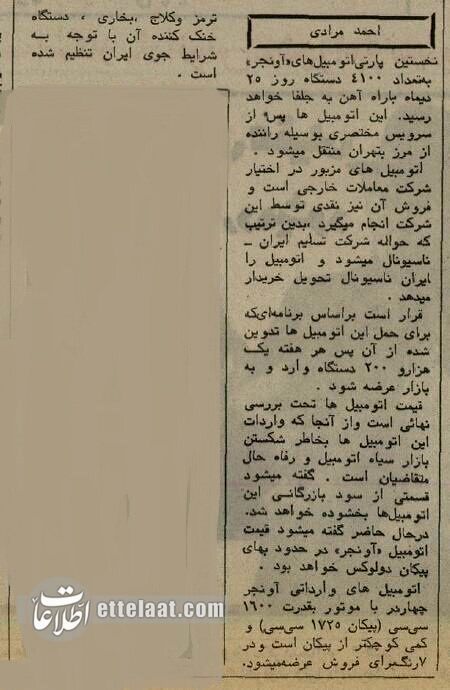 احمد مرادی
نخستین پارتی‌اتومبیل‌های«آونجر»
به‌تعداد ٤١٠٠ دستگاه روز ٢٥
دیماه باراه آهن به جلفا خواهد
رسید. این اتومبیل ها پس از
سرویس مختصری بوسیله راننده
از مرز بتهران منتقل میشود .
اتومبیل های مزبور در اختیار
شرکت معاملات خارجی است و
فروش آن نیز نقدی توسط این
شرکت انجام میگیرد ،بدین ترتیب
که حواله شرکت تسلیم ایران ـ
ناسیونال میشود و اتومبیل را
ایران ناسیونال تحویل خریدار
میدهد .
قرار است براساس برنامه‌ای‌که
برای حمل این اتومبیل ها تدوین
شده از آن پس هر هفته یک
هزارو ٢٠٠ دستگاه وارد و به
بازار عرضه شود .
قیمت اتومبیل ها تحت بررسی
نهائی است واز آنجا که واردات
این اتومبیل ها بخاطر شکستن
بازار سیاه اتومبیل و رفاه حال
متقاضیان است . گفته میشود
قسمتی از سود بازرگانی این
اتومبیل‌ها بخشوده خواهد شد.
درحال حاضر گفته میشود قیمت
اتومبیل «آونجر» در حدود بهای
پیکان دولوکس خواهد بود .
اتومبیل های وارداتی آونجر
چهاردر با موتور بقدرت ١٦٠٠
سی‌سی (پیکان ١٧٢٥ سی‌سی) و
کمی کوچکتر از پیکان است و در
٧رنگ‌برای فروش عرضه‌میشود.
ترمز وکلاج ،بخاری ، دستگاه
خنک کننده آن با توجه به
شرایط جوی ایران تنظیم شده
است .
اطلاعات
ettelaat.com